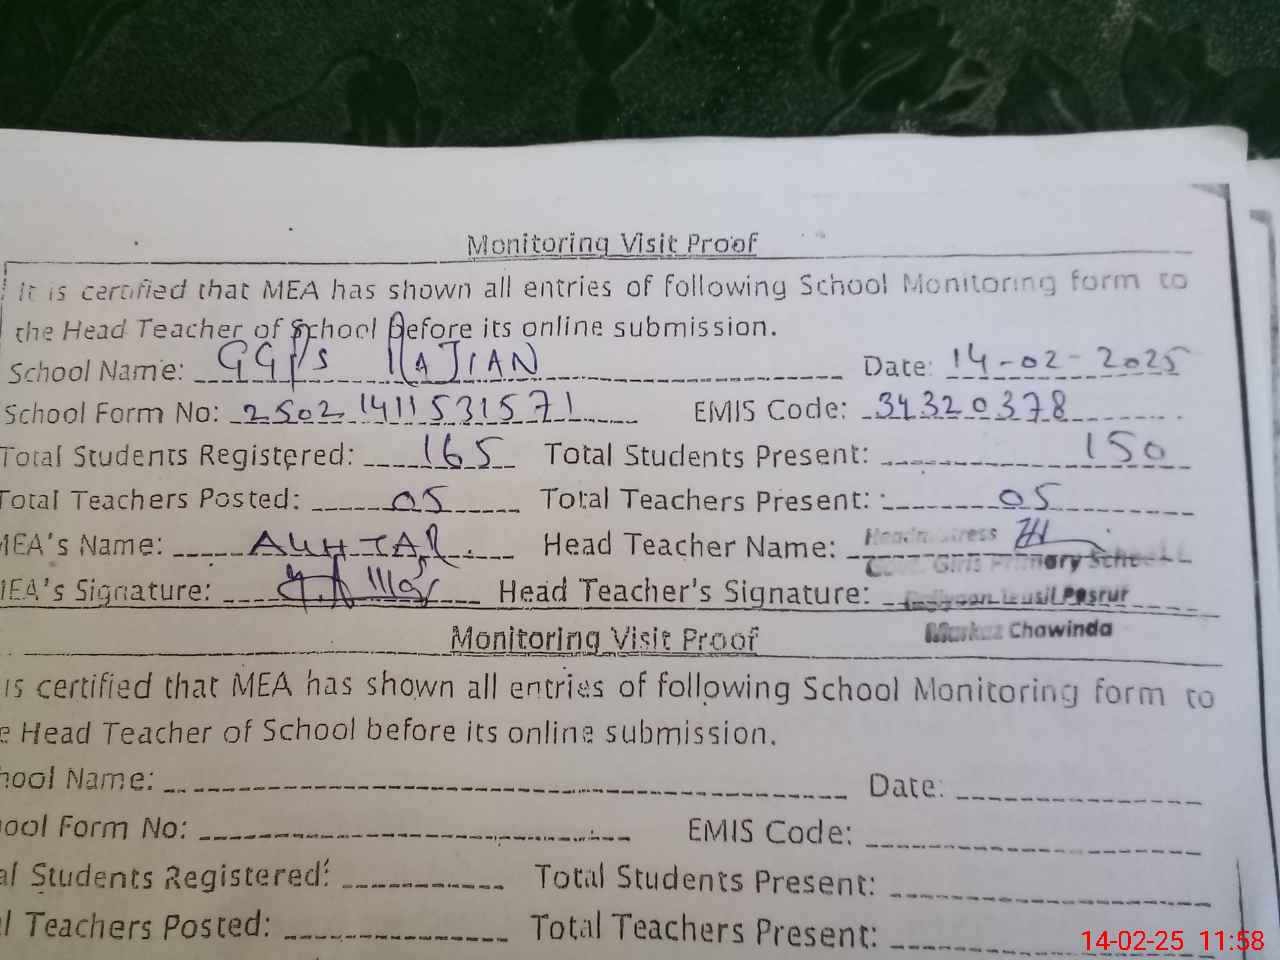 Monitoring Visit Proof
It is certified that MEA has shown all entries of following School Monitoring form to
the Head Teacher of School before its online submission.
School Name: GGP/S RAJIAN Date: 14-02-2025
School Form No: 25021411531571 EMIS Code: 34320378
Total Students Registered: 165 Total Students Present: 150
Total Teachers Posted: 05 Total Teachers Present: 05
MEA's Name: Head Teacher Name: Headmistress
Govt. Girls Primary School
MEA's Signature: Head Teacher's Signature: Pasrur
Markaz Chawinda
Monitoring Visit Proof
is certified that MEA has shown all entries of following School Monitoring form to
e Head Teacher of School before its online submission.
hool Name: Date:
ool Form No: EMIS Code:
al Students Registered: Total Students Present:
l Teachers Posted: Total Teachers Present:
14-02-25 11:58